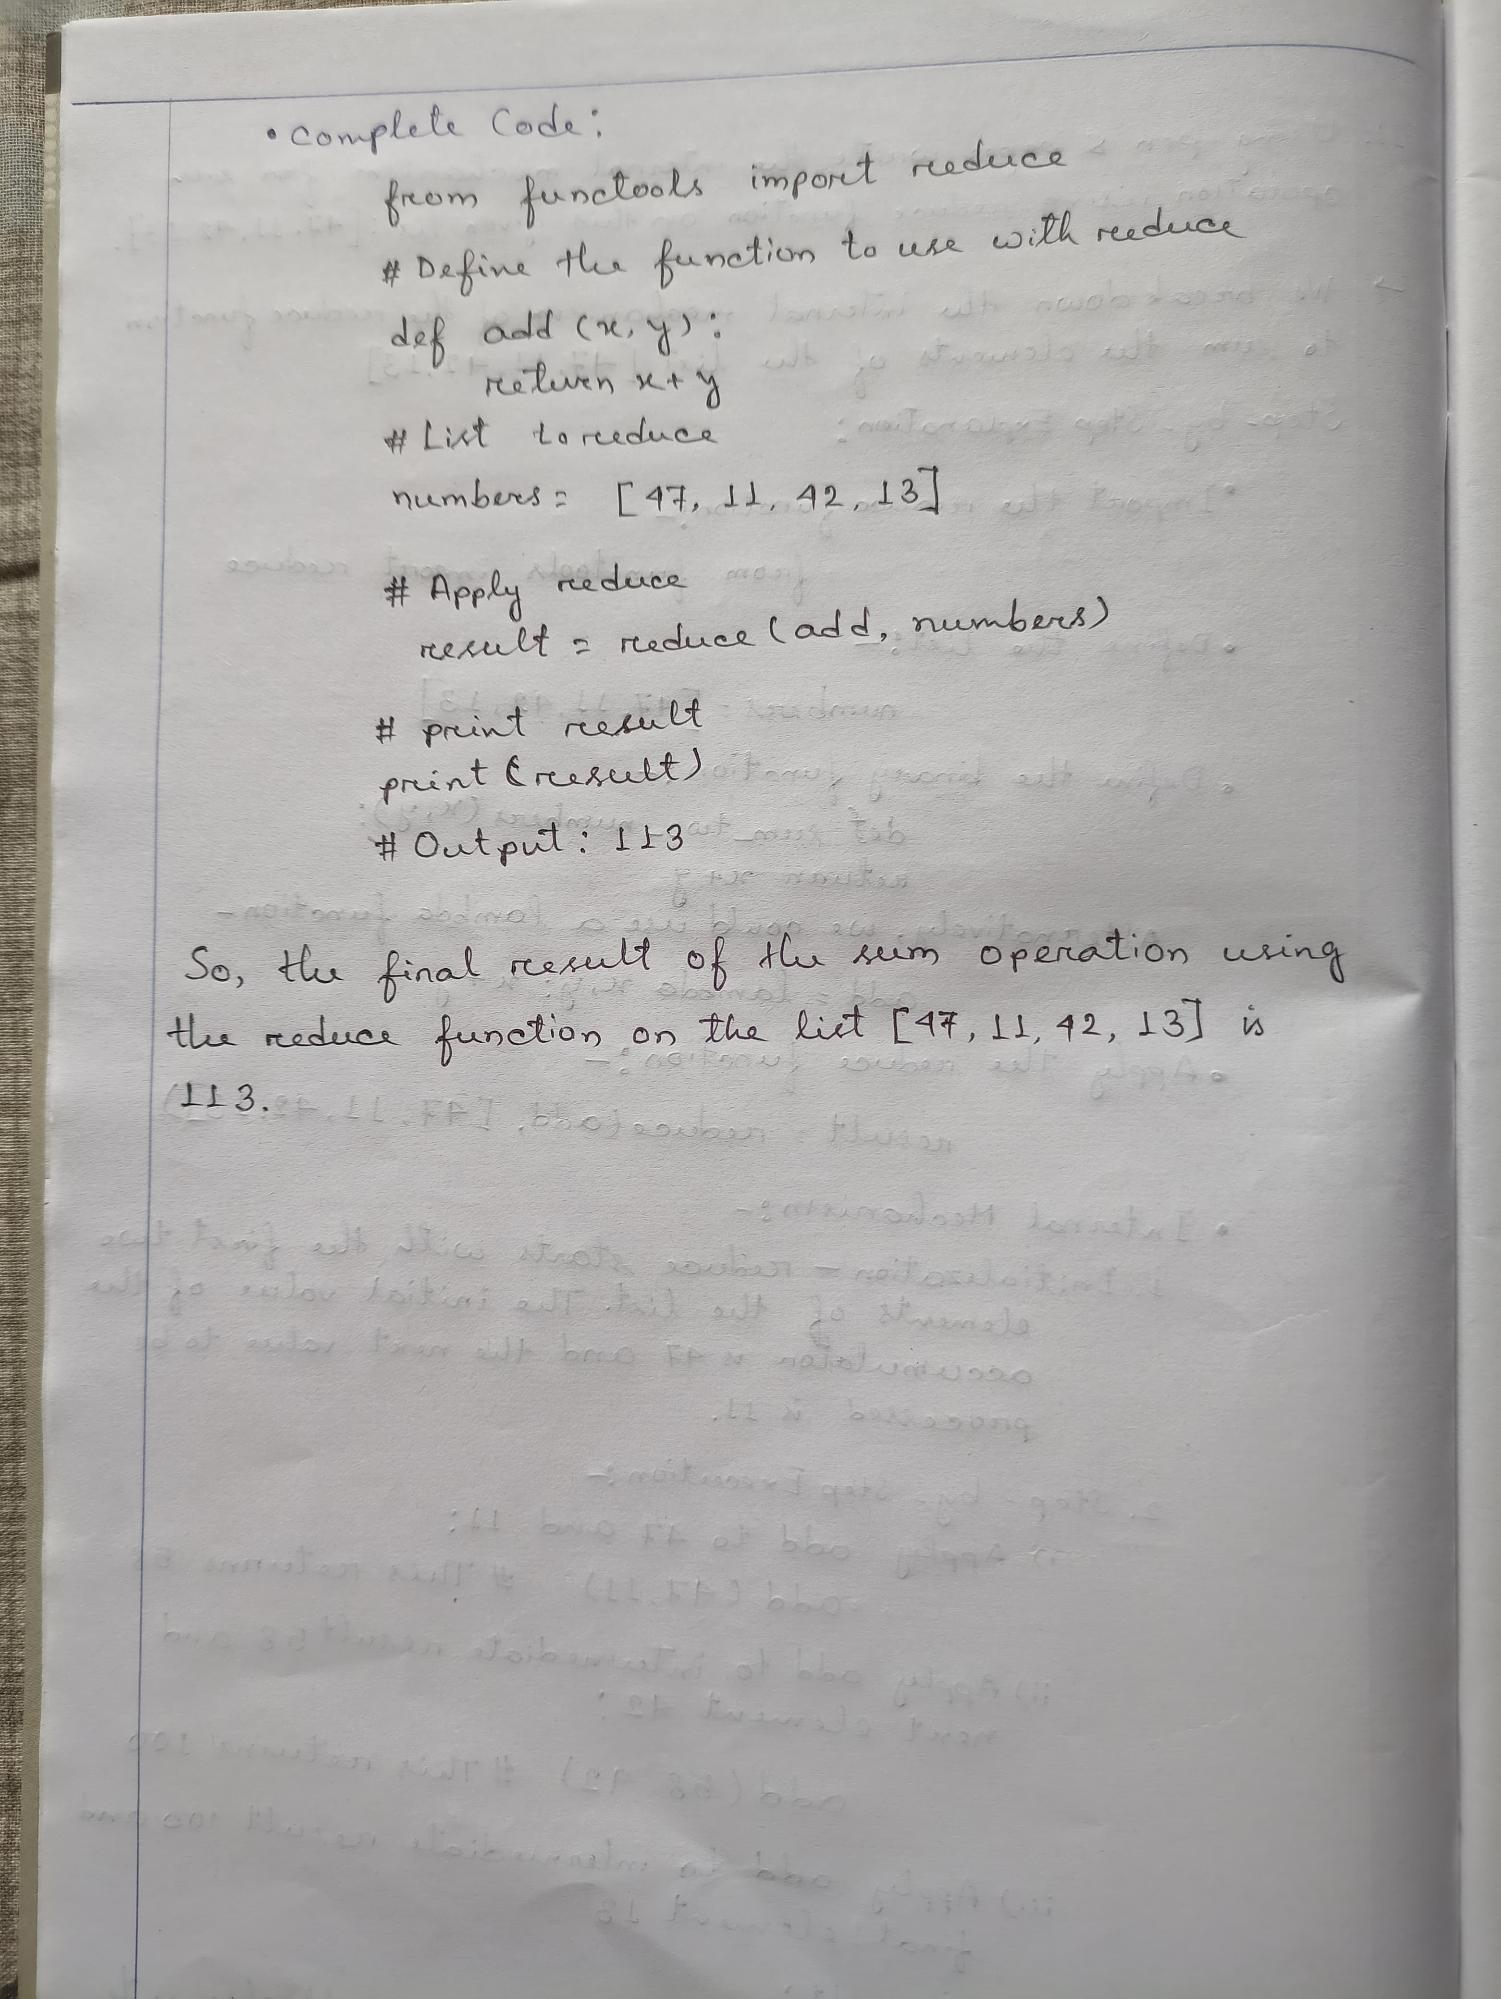 • Complete Code:
from functools import reduce
# Define the function to use with reduce
def add (x, y):
return x+y
# List to reduce
numbers = [47, 11, 42, 13]
# Apply reduce
result = reduce (add, numbers)
# print result
print (result)
# Output: 113
So, the final result of the sum operation using
the reduce function on the list [47, 11, 42, 13] is
113.